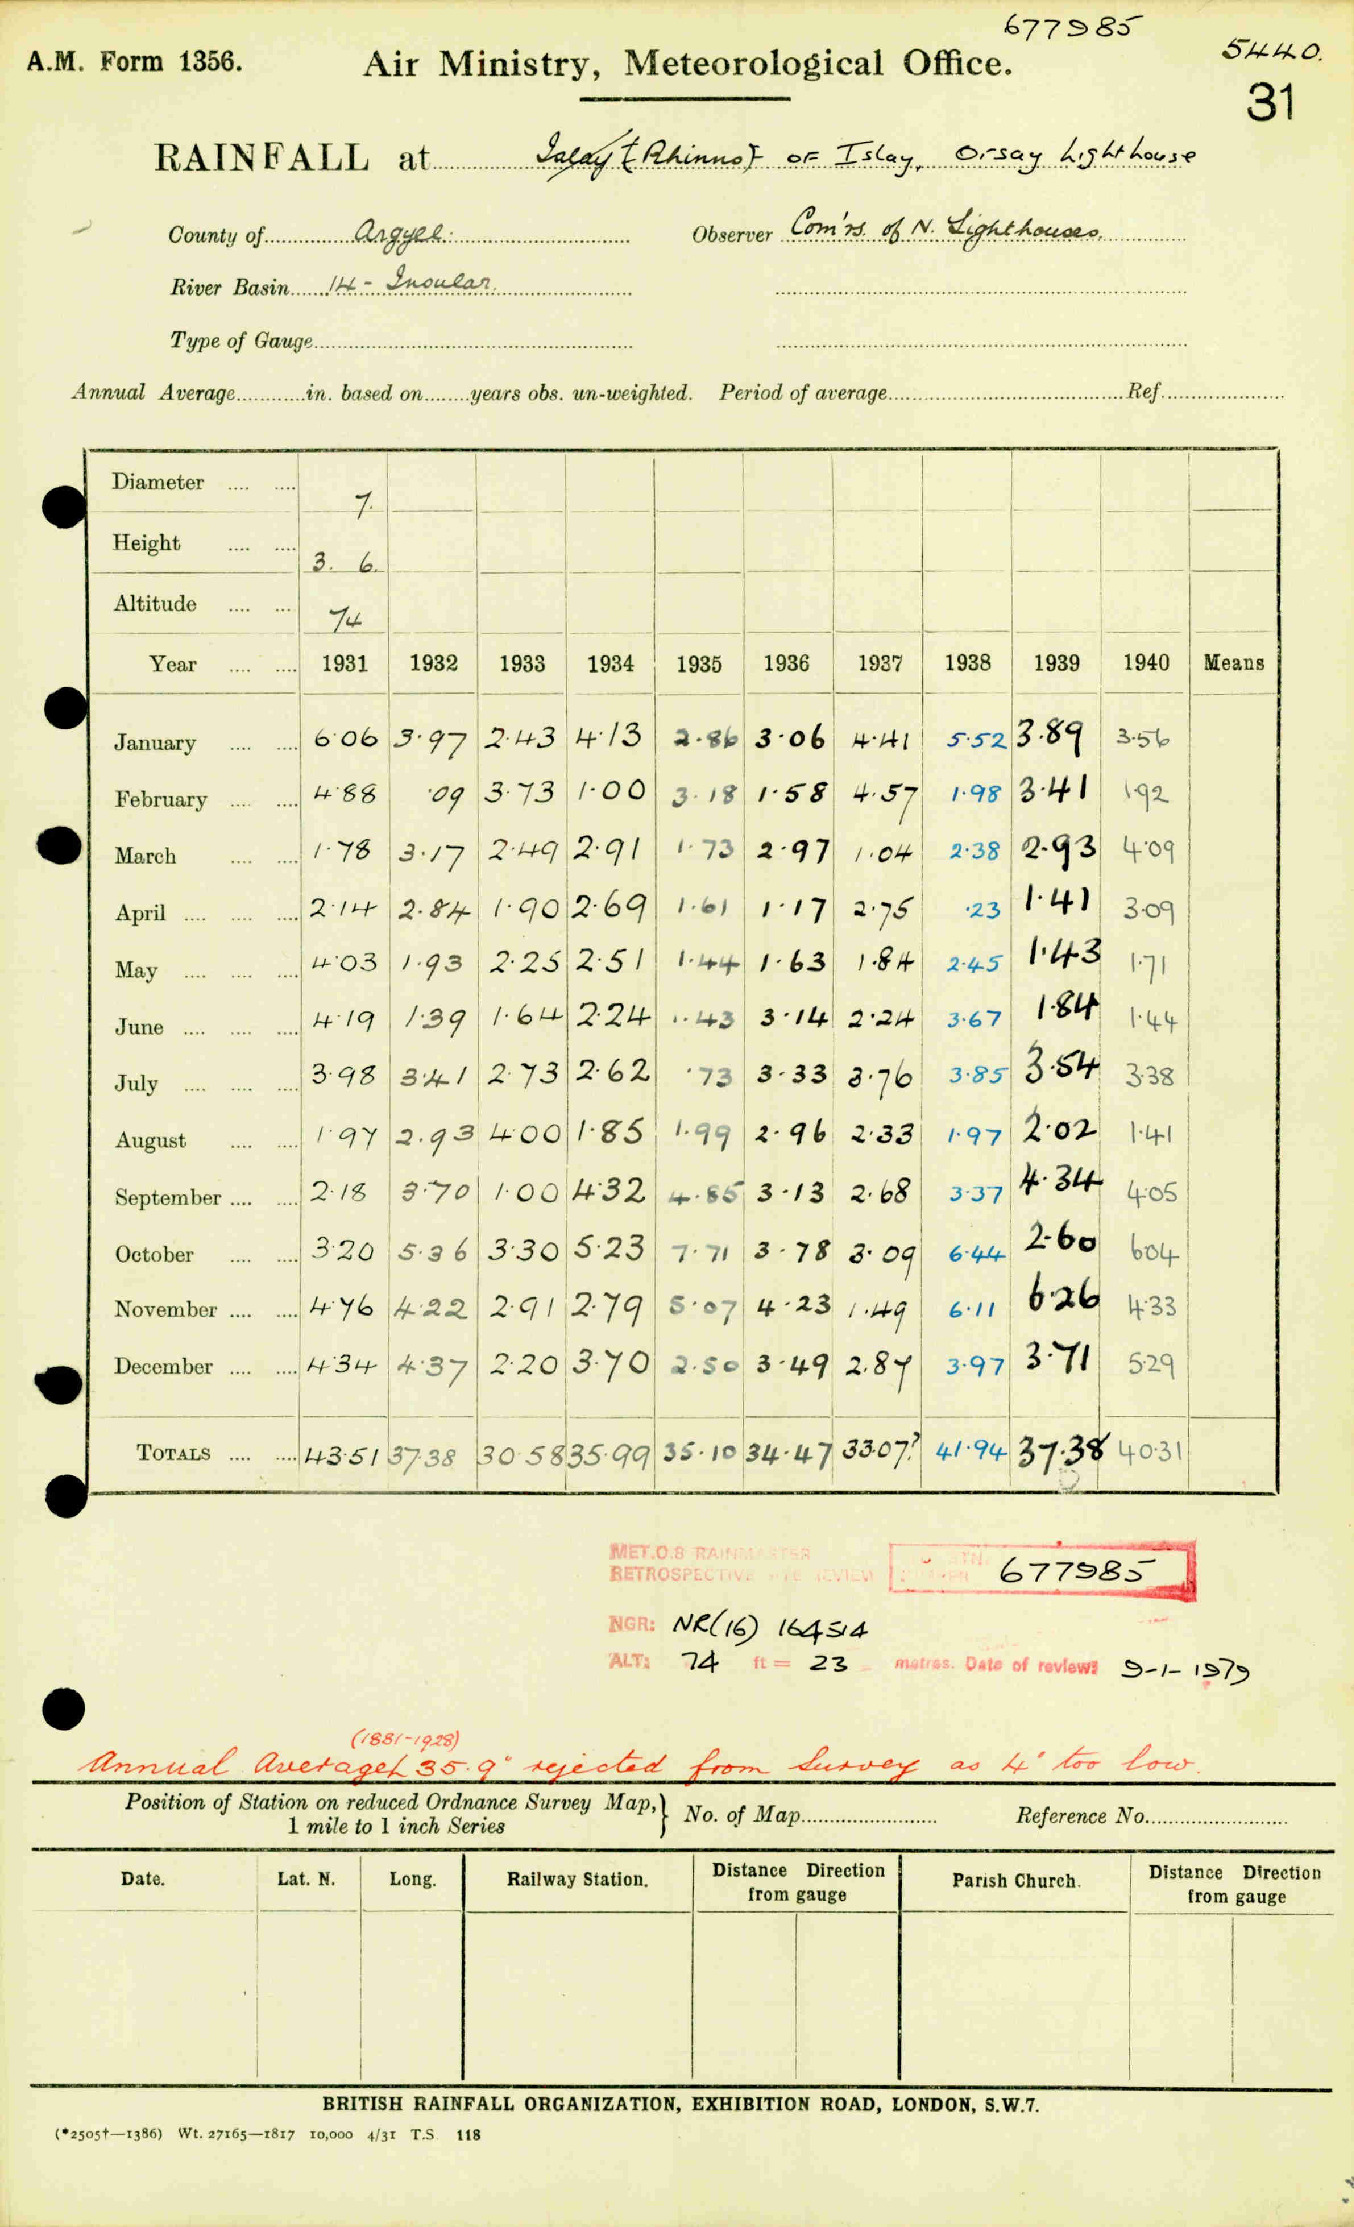 677985
A.M. Form 1356. Air Ministry, Meteorological Office. 5440.
31
RAINFALL at Islay (Rhinns) OF Islay, Orsay Lighthouse
County of Argyll. Observer Com'rs. of N. Lighthouses.
River Basin 14 - Insular.
Type of Gauge
Annual Average in. based on years obs. un-weighted. Period of average Ref
Diameter 7.
Height 3. 6.
Altitude 74
Year 1931 1932 1933 1934 1935 1936 1937 1938 1939 1940 Means
January 6·06 3·97 2·43 4·13 2·86 3·06 4·41 5·52 3·89 3·56
February 4·88 ·09 3·73 1·00 3·18 1·58 4·57 1·98 3·41 1·92
March 1·78 3·17 2·49 2·91 1·73 2·97 1·04 2·38 2·93 4·09
April 2·14 2·84 1·90 2·69 1·61 1·17 2·75 ·23 1·41 3·09
May 4·03 1·93 2·25 2·51 1·44 1·63 1·84 2·45 1·43 1·71
June 4·19 1·39 1·64 2·24 1·43 3·14 2·24 3·67 1·84 1·44
July 3·98 3·41 2·73 2·62 ·73 3·33 3·76 3·85 3·54 3·38
August 1·97 2·93 4·00 1·85 1·99 2·96 2·33 1·97 2·02 1·41
September 2·18 3·70 1·00 4·32 4·85 3·13 2·68 3·37 4·34 4·05
October 3·20 5·36 3·30 5·23 7·71 3·78 3·09 6·44 2·60 6·04
November 4·76 4·22 2·91 2·79 5·07 4·23 1·49 6·11 6·26 4·33
December 4·34 4·37 2·20 3·70 2·50 3·49 2·87 3·97 3·71 5·29
TOTALS 43·51 37·38 30·58 35·99 35·10 34·47 33·07? 41·94 37·38 40·31
MET.O.8 RAINMASTER
RETROSPECTIVE REVIEW STN. 677985
NGR: NR(16) 164514
ALT: 74 ft = 23 metres. Date of review: 9-1-1979
(1881-1928)
Annual Average 35.9" rejected from Survey as 4" too low.
Position of Station on reduced Ordnance Survey Map, } No. of Map Reference No.
1 mile to 1 inch Series
Date. Lat. N. Long. Railway Station. Distance Direction from gauge Parish Church. Distance Direction from gauge
BRITISH RAINFALL ORGANIZATION, EXHIBITION ROAD, LONDON, S.W.7.
(*2505†—1386) Wt. 27165—1817 10,000 4/31 T.S 118